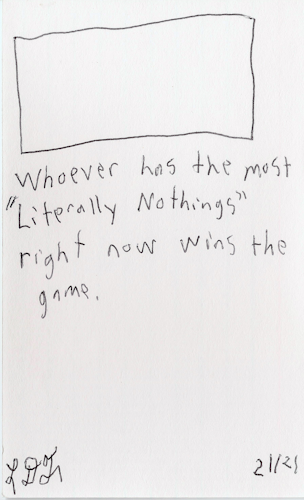 Whoever has the most
"Literally Nothings"
right now wins the
game.